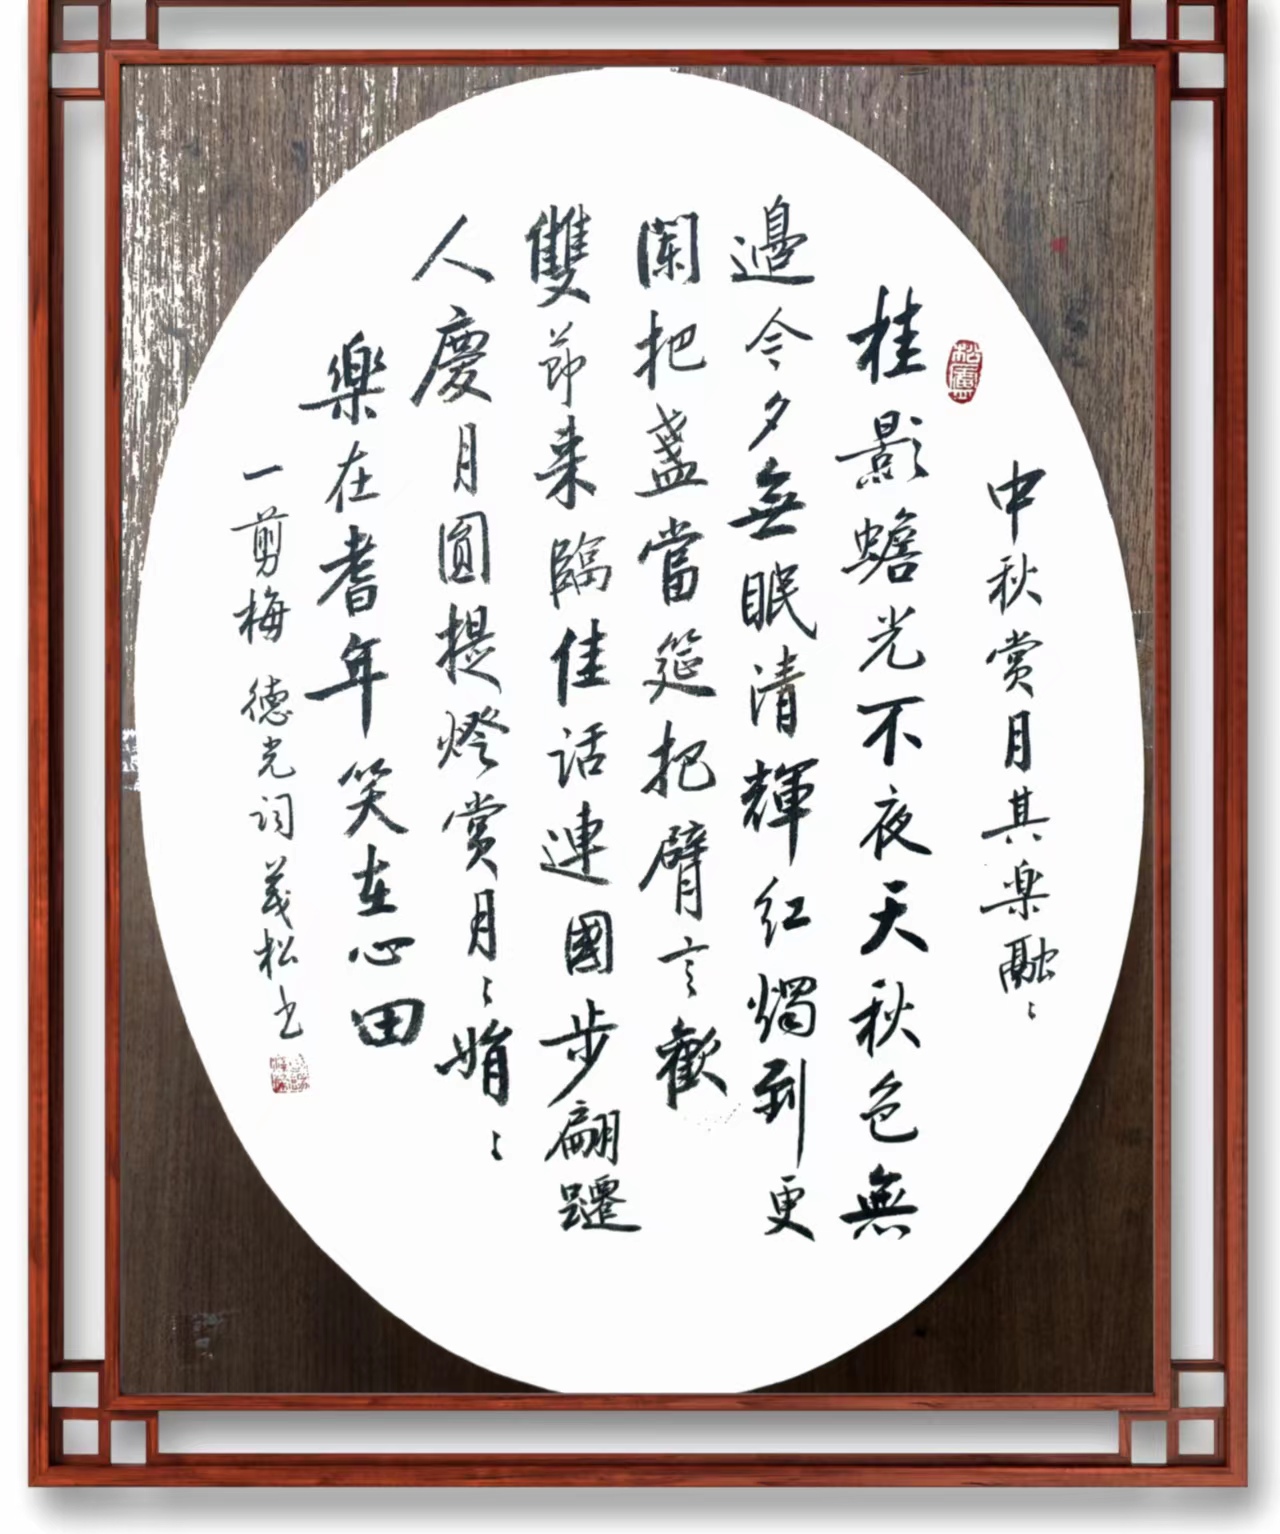 中秋赏月其楽融〻
桂影蟾光不夜天秋色無
邊今夕無眠清輝红燭到更
闌把盏當筵把臂言歡
雙節来臨佳話連國步翩躚
人慶月圓提燈賞月〻娟〻
樂在耆年笑在心田
一剪梅 德光词 茂松书